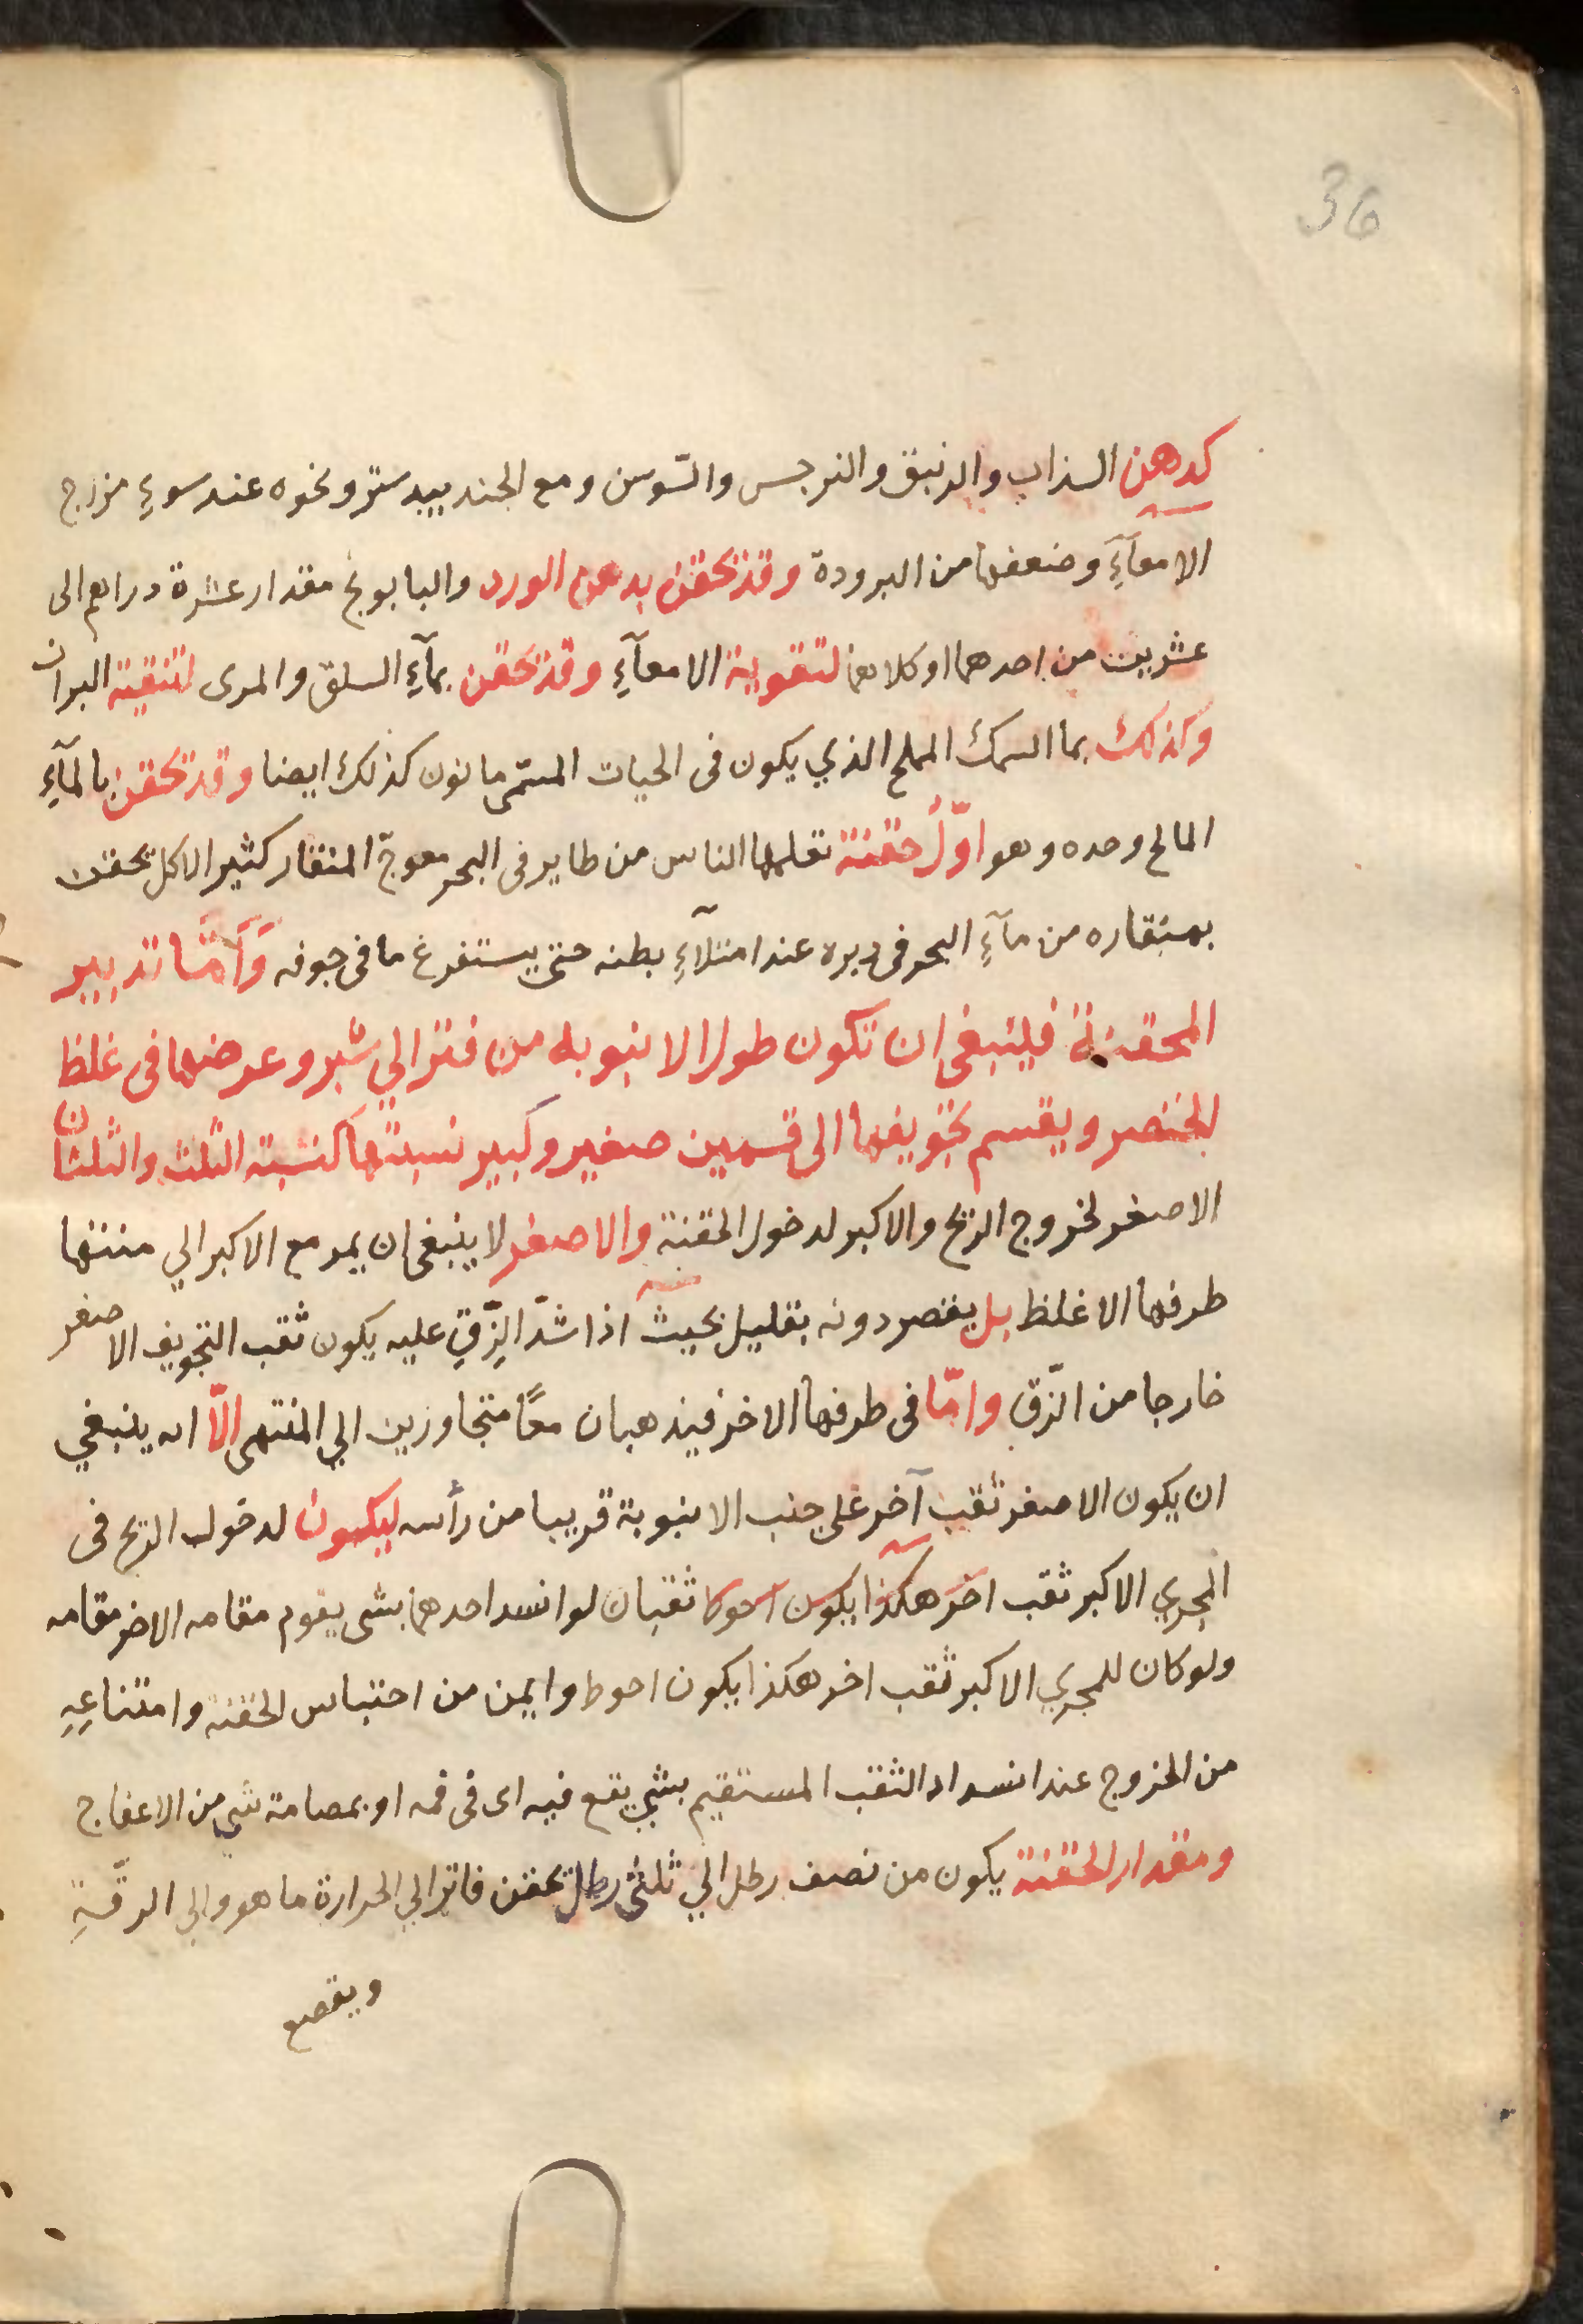 36
كدهن السذاب والزنبق والنرجس والسّوسن ومع الجندبيدستر ونحوه عند سوءِ مزاج
الامعآءِ وضعفها من البرودة وقد تحقن بدهن الورد والبابونج مقدار عشرة دراهم الى
عشرين من احدهما او كلاهما لتقوية الامعآءِ وقد تحقن بمآءِ السلق والمرى لتنقية البراز
وكذلك بما السمك المملح الذي يكون فى الحيات المسمّى مانون كذلك ايضا وقد تحقن بالمآءِ
المالح وحده وهو اوّل حقنة تعلمها الناس من طاير فى البحر معوجّ المنقار كثير الاكل يحقن
بمنقاره من مآءِ البحر فى دبره عند امتلآءِ بطنه حتى يستفرغ ما فى جوفه وَأمّا تدبير
المحقنة فلينبغى ان تكون طول الانبوبه من فتر الي شبر وعرضها فى غلظ
الخنصر ويقسم تجويفها الى قسمين صغير وكبير نسبتهما كنسبة الثلث والثلثان
الاصغر لخروج الريح والاكبر لدخول الحقنة والاصغر لا ينبغى ان يمر مع الاكبر الي منتها
طرفها الاغلظ بل يقصر دونه بقليل بحيث اذا شدّ الزّق عليه يكون ثقب التجويف الاصغر
خارجا من الزّق وامّا فى طرفها الاخر فيذهبان معًا متجاوزين الي المنتهى الّا انه ينبغي
ان يكون الاصغر ثقب آخر على جنب الانبوبة قريبا من رأسه ليكون لدخول الريح فى
المجري الاكبر ثقب اخر هكذا يكون احوط ثقبان لو انسد احدهما بشى يقوم مقامه الاخر مقامه
ولو كان للمجري الاكبر ثقب اخر هكذا يكون احوط وايمن من احتباس الحقنة وامتناعِهِ
من الخروج عند انسداد الثقب المستقيم بشي يقع فيه اى فى فمه او بمصامة شي من الاعفاج
ومقدار الحقنة يكون من نصف رطل الي ثلثى رطل تحقن فاتر الي الحرارة ما هو والي الرقّةِ